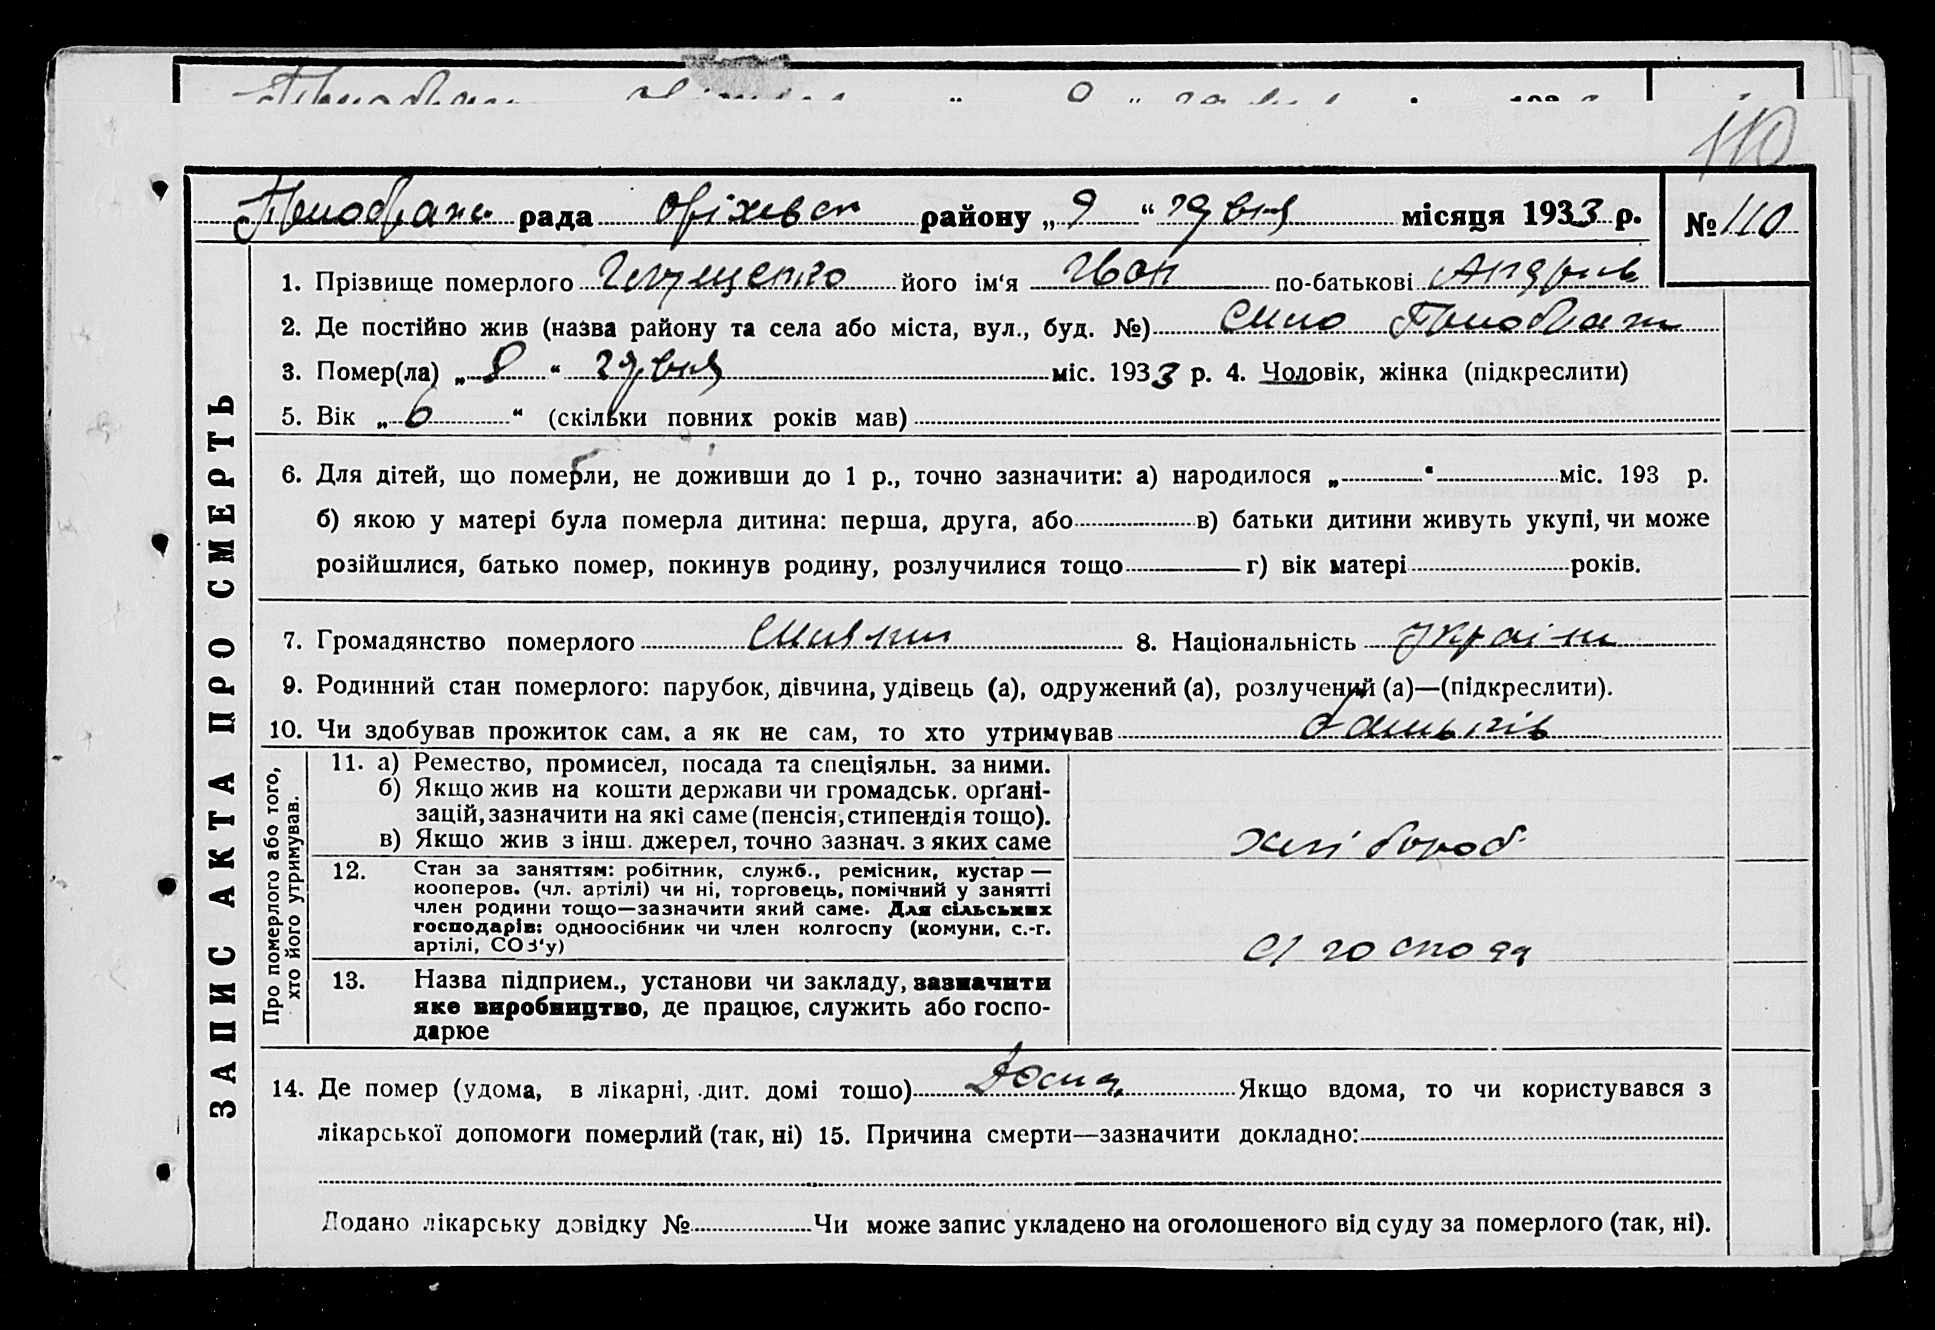 110
Преображ. рада Оріхевск району „9“ грудня місяця 1933 р. № 110
ЗАПИС АКТА ПРО СМЕРТЬ
1. Прізвище померлого його ім'я Іван по-батькові Андрiив
2. Де постійно жив (назва району та села або міста, вул., буд. №) Село Преображ
3. Помер(ла) „8“ грудня міс. 1933 р. 4. Чоловік, жінка (підкреслити)
5. Вік „6“ (скільки повних років мав)
6. Для дітей, що померли, не доживши до 1 р., точно зазначити: а) народилося „ “ міс. 193 р.
б) якою у матері була померла дитина: перша, друга, або в) батьки дитини живуть укупі, чи може
розійшлися, батько помер, покинув родину, розлучилися тощо г) вік матері років.
7. Громадянство померлого 8. Національність Україн
9. Родинний стан померлого: парубок, дівчина, удівець (а), одружений (а), розлучений (а)—(підкреслити).
10. Чи здобував прожиток сам, а як не сам, то хто утримував батьків
Про померлого або того,
хто його утримував.
11. а) Ремество, промисел, посада та спеціяльн. за ними.
б) Якщо жив на кошти держави чи громадськ. орґані-
зацій, зазначити на які саме (пенсія, стипендія тощо).
в) Якщо жив з інш. джерел, точно зазнач. з яких саме
Хлібороб
12. Стан за заняттям: робітник, служб., ремісник, кустар —
кооперов. (чл. артілі) чи ні, торговець, помічний у занятті
член родини тощо—зазначити який саме. Для сільських
господарів: одноосібник чи член колгоспу (комуни, с.-г.
артілі, СОЗ'у)
С/господ
13. Назва підприєм., установи чи закладу, зазначити
яке виробництво, де працює, служить або госпо-
дарює
14. Де помер (удома, в лікарні, дит. домі тощо) Дома Якщо вдома, то чи користувався з
лікарської допомоги померлий (так, ні) 15. Причина смерти—зазначити докладно:
Додано лікарську довідку № Чи може запис укладено на оголошеного від суду за померлого (так, ні).